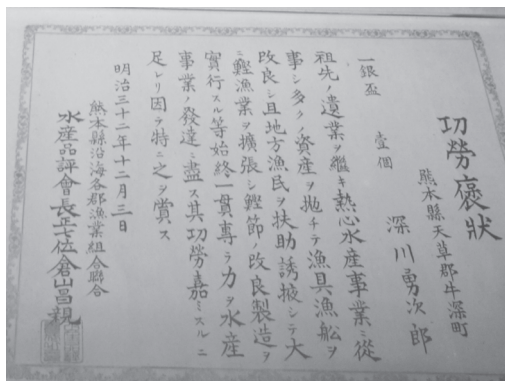 功勞褒狀
熊本縣天草郡牛深町
深川勇次郎
一銀盃　壹個
祖先ノ遺業ヲ繼キ熱心水産事業ニ從
事シ多クノ資産ヲ抛チテ漁具漁船ヲ
改良シ且地方漁民ヲ扶助誘掖シテ大
ニ鰹漁業ヲ擴張シ鰹節ノ改良製造ヲ
實行スル等始終一貫專ラ力ヲ水産
事業ノ發達ニ盡ス其功勞嘉ミスルニ
足レリ因テ特ニ之ヲ賞ス
明治三十二年十二月三日
熊本縣沿海各郡漁業組合聯合
水産品評會長正七位倉山昌親